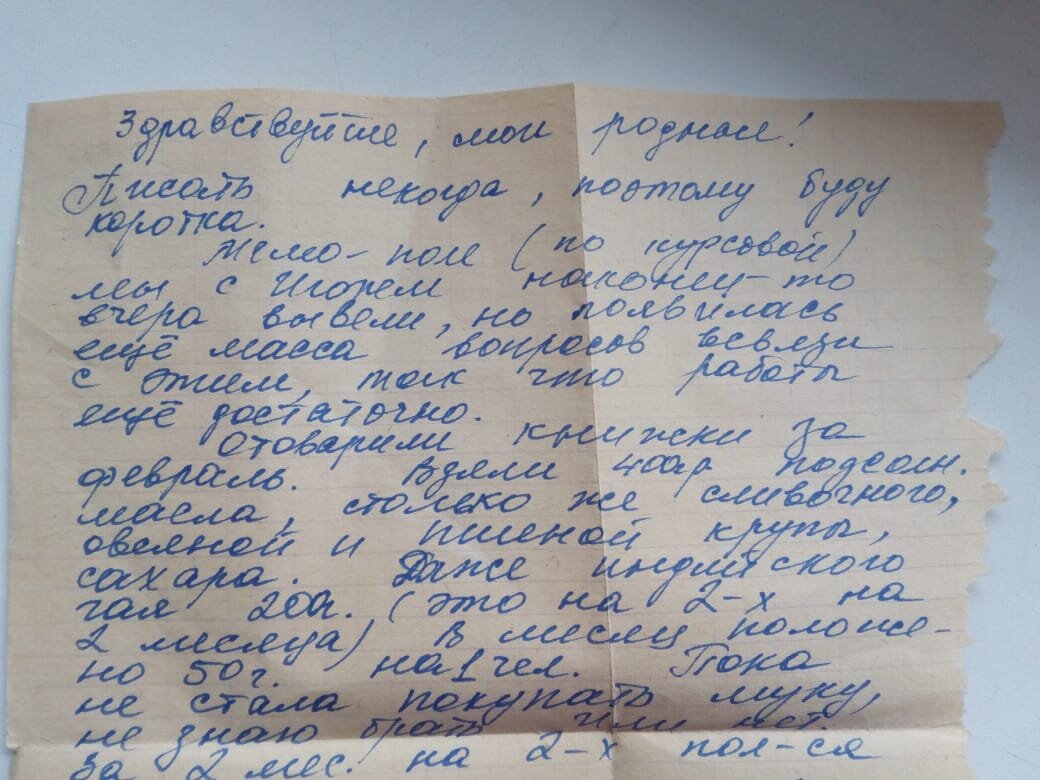 Здравствуйте, мои родные!
Писать некогда, поэтому буду
коротка.
(по курсовой)
мы с Игорем наконец-то
вчера вывели, но появилась
ещё масса вопросов всвязи
с этим, так что работы
ещё достаточно.
Отоварили книжки за
февраль. Взяли 400гр подсолн.
масла, столько же сливочного,
овсяной и пшеной крупы,
сахара. Даже индийского
чая 200г. (это на 2-х на
2 месяца) В месяц положе-
но 50г. на 1 чел. Пока
не стала покупать муку,
не знаю брать или нет.
За 2 мес. на 2-х пол-ся